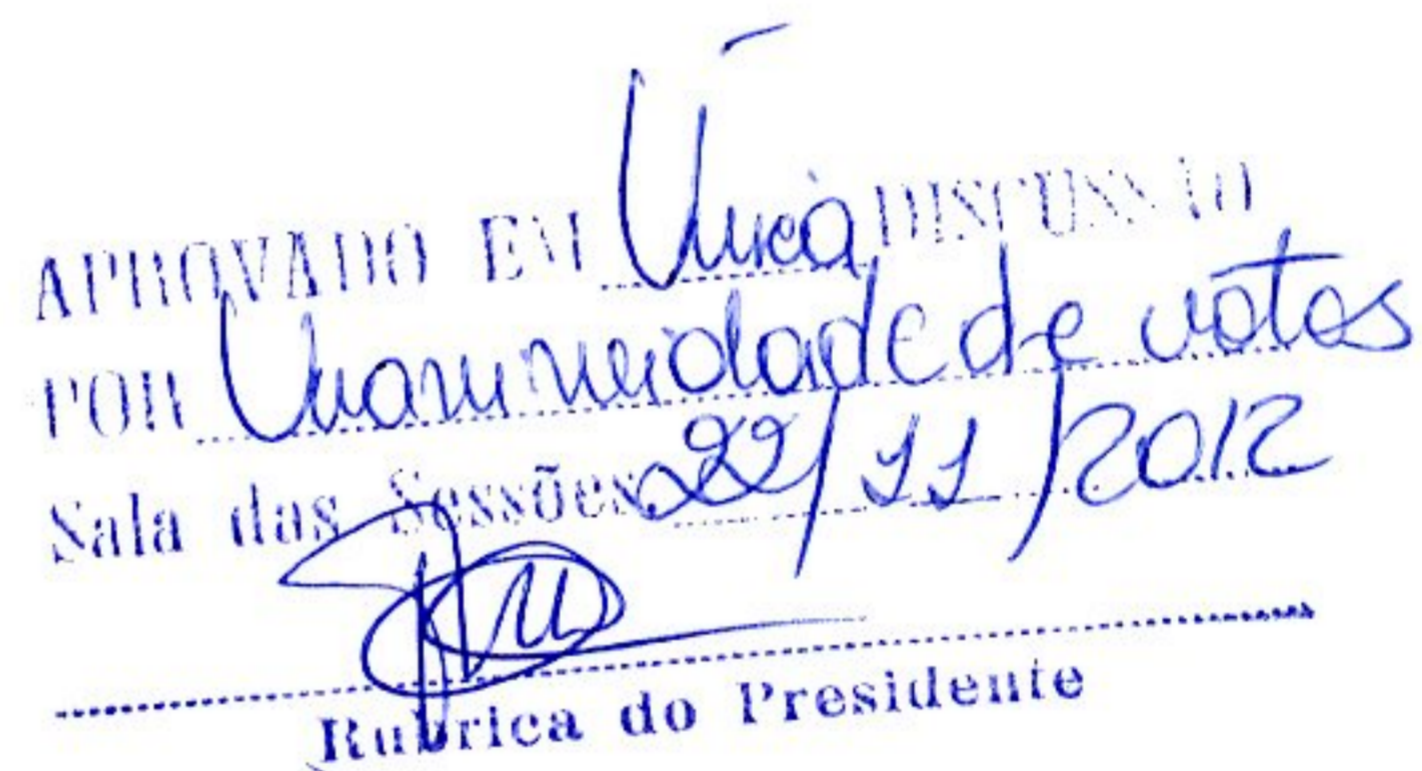 APROVADO EM Única DISCUSSÃO
POR Unanimidade de votos
Sala das Sessões 22/11/2012
Rubrica do Presidente